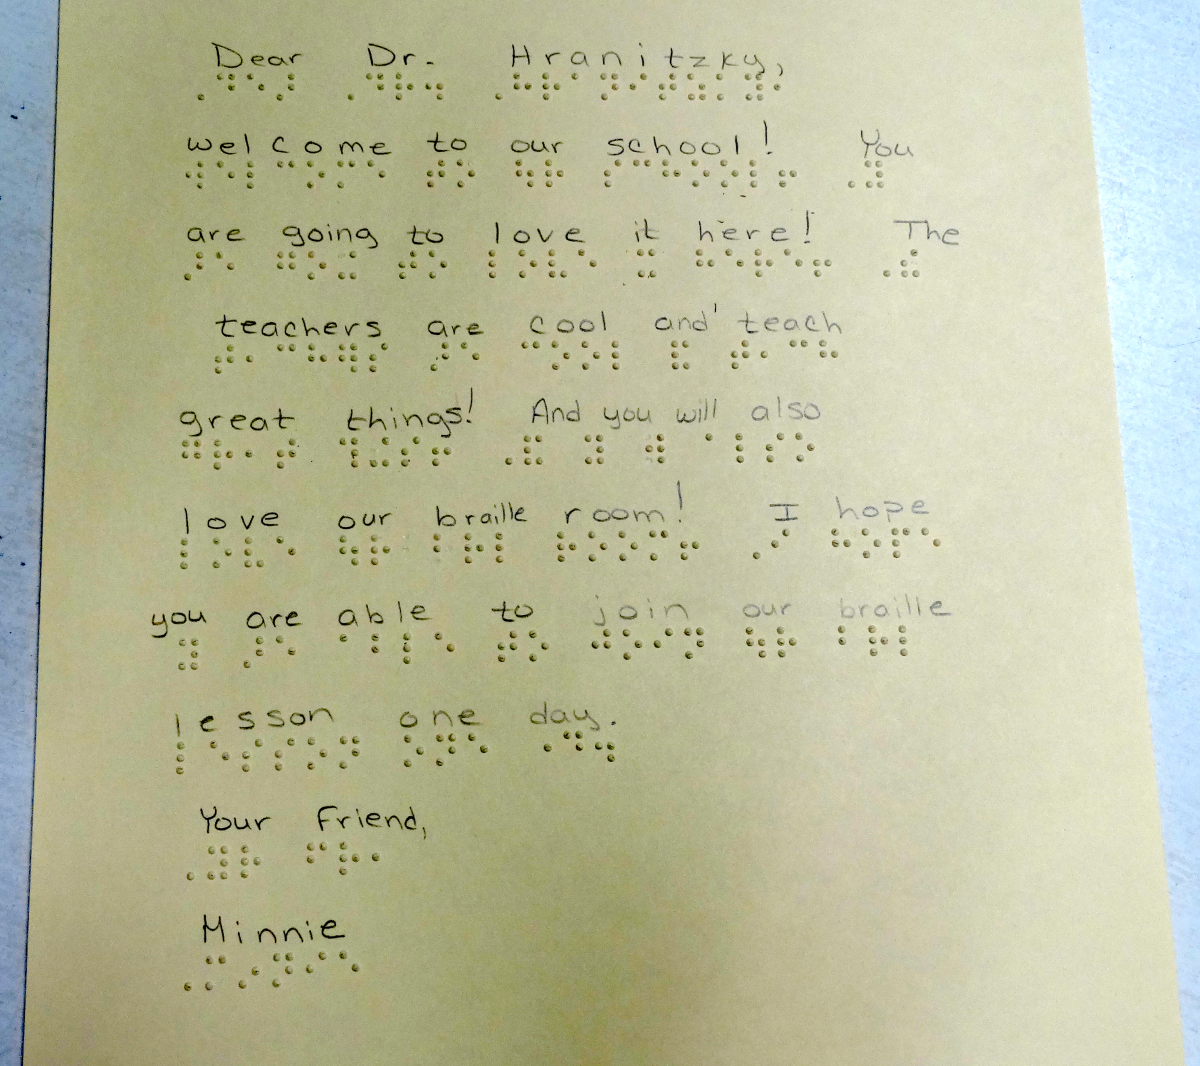 Dear Dr. Hranitzky,
welcome to our school! You
are going to love it here! The
teachers are cool and teach
great things! And you will also
love our braille room! I hope
you are able to join our braille
lesson one day.
Your Friend,
Minnie